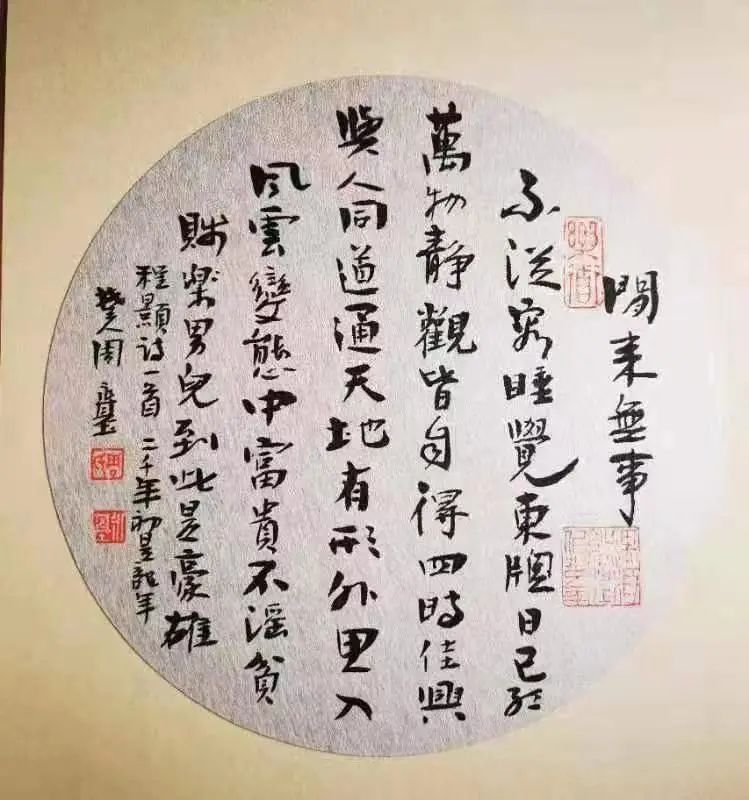 閒来無事
不從容睡覺東牕日已紅
萬物靜觀皆自得四時佳興
與人同道通天地有形外思入
風雲變態中富貴不淫貧
賤樂男兒到此是豪雄
程顥诗一首 二千年初是龍年
樊周